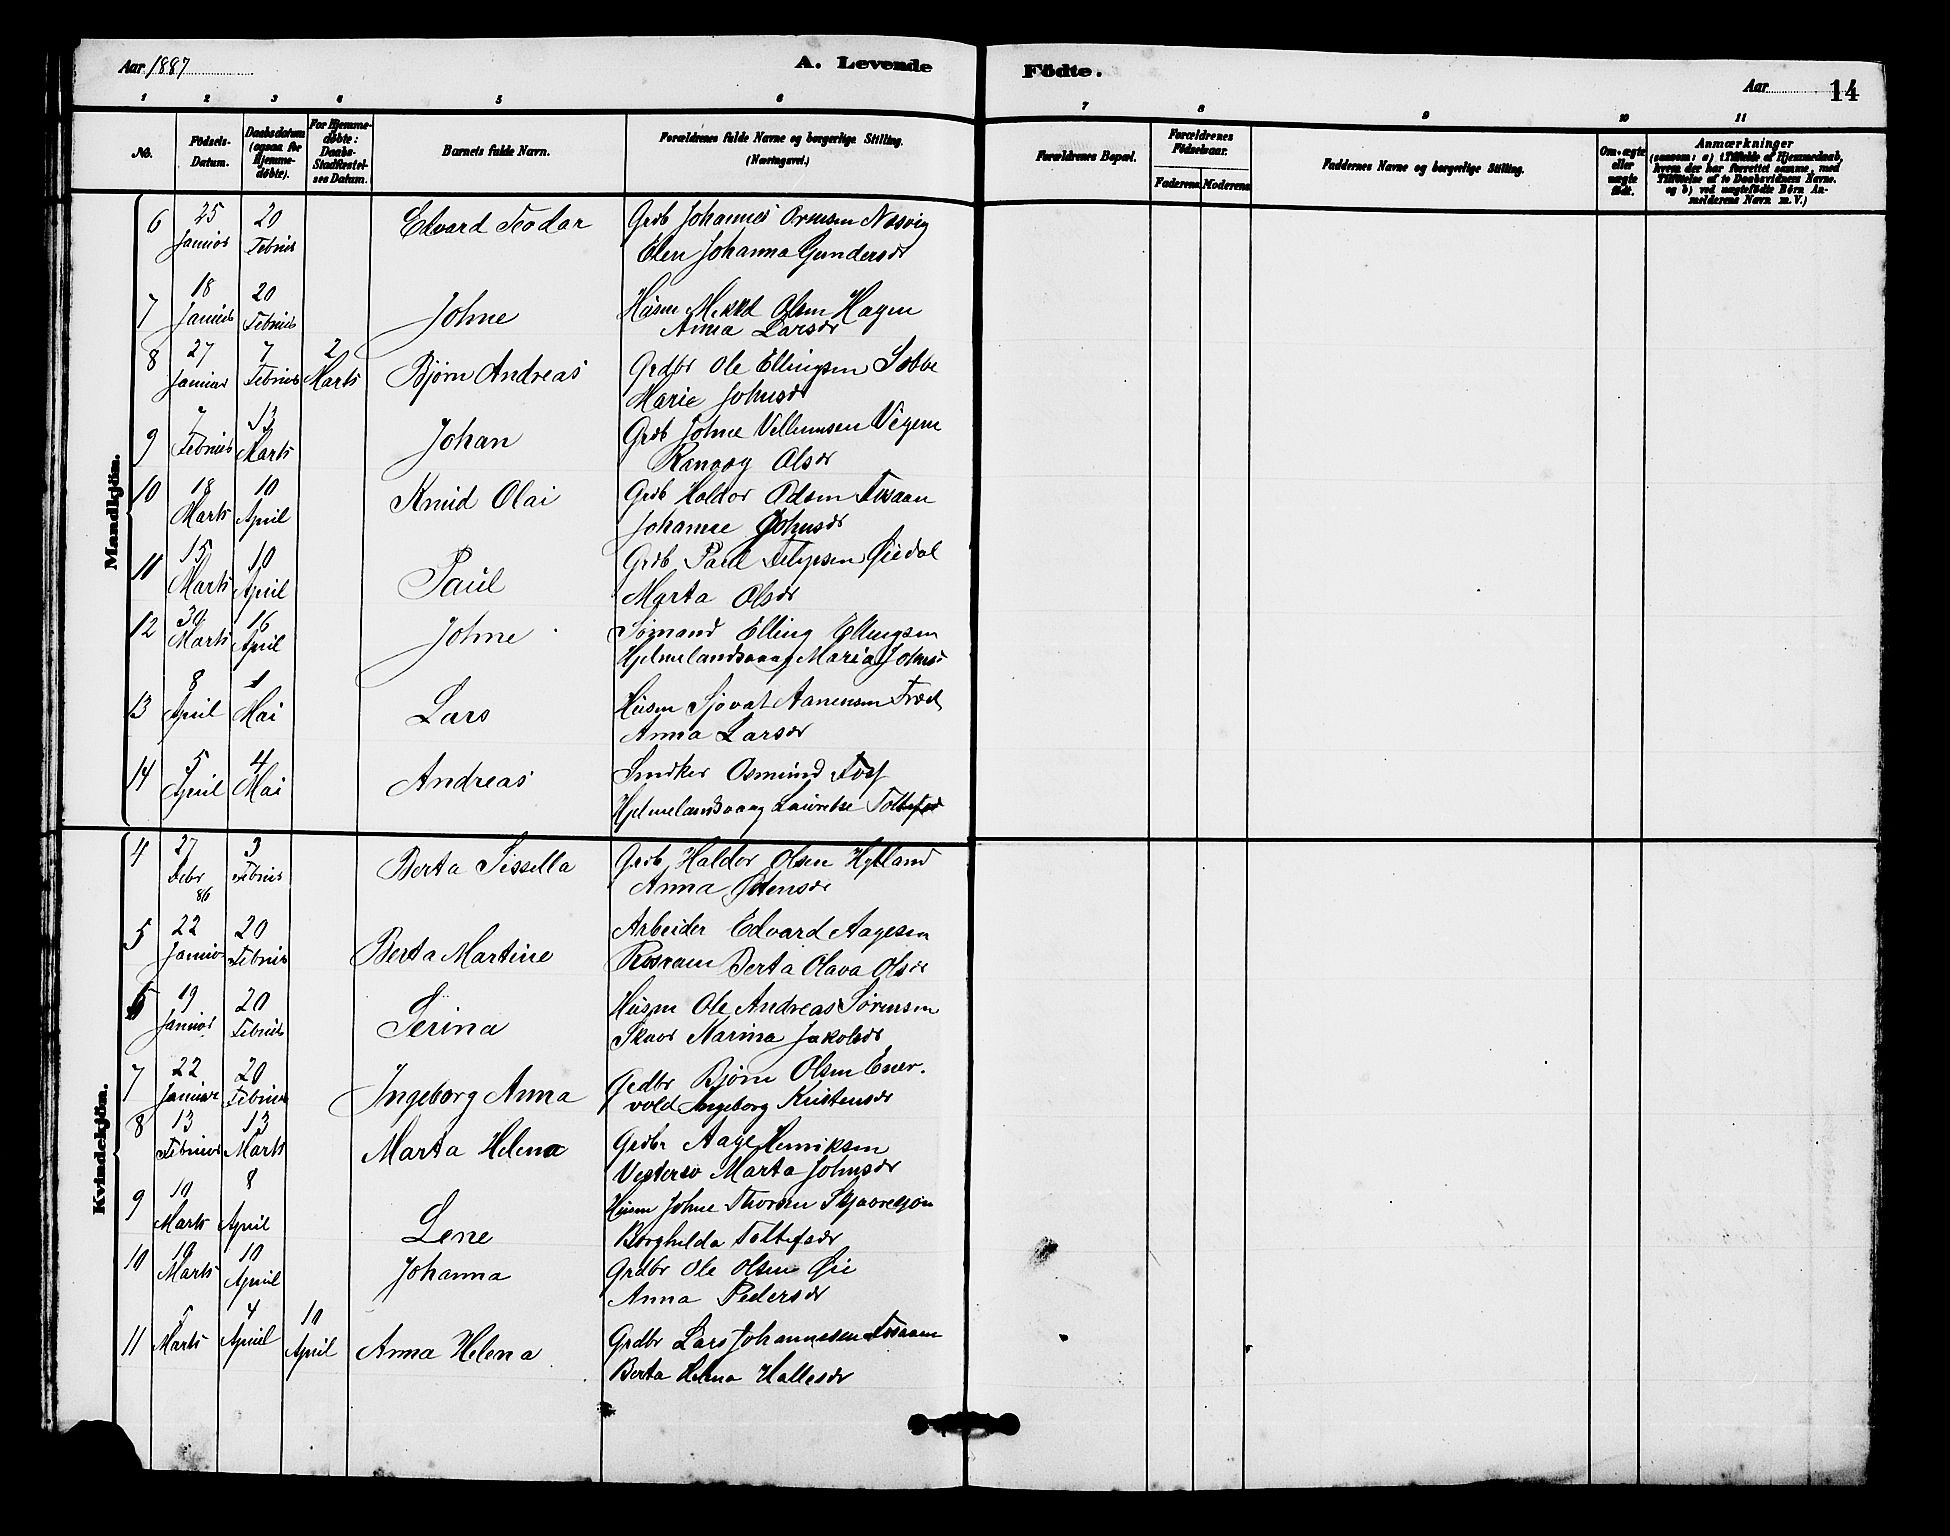 Aar 1887
A. Levende
Födte.
Aar
14
1 2 3 4 5 6 7 8 9 10 11
No.
Födsels-Datum.
Daabsdatum (ogsaa for Hjemme-döbte).
For Hjemme-döbte: Daabs-Stadfæstel-ses Datum.
Barnets fulde Navn.
Forældrenes fulde Navne og borgerlige Stilling. (Næringsvei.)
Forældrenes Bopæl.
Forældrenes Födselsaar.
Faderens Moderens
Faddernes Navne og borgerlige Stilling.
Om ægte eller uægte födt.
Anmærkninger
(saasom: a) i Tilfælde af Hjemmedaab,
hvem der har forrettet samme, med
Tilføielse af to Daabsvidners Navne.
og b) ved uægtefödte Börn An-
melderens Navn m. V.)
Mandkjön.
6 25 Januar 20 Februar Edvard Teodor Grdb Johannes Ormsen Nesvig
Elen Johanna Gundersdr
7 18 Januar 20 Februar Johne Husm Mikkel Olsen Hagen
Anna Larsdr
8 27 Januar 7 Februar 2 Marts Bjørn Andreas Grdbr Ole Ellingsen
Marie Johnsdr
9 7 Februar 13 Marts Johan Grdb Johne Villumsen
Olsdr
10 18 Marts 10 April Knud Olai Grdb Haldor Odsen Fosaan
Johanne Johnsdr
11 15 Marts 10 April Paul Grdb Paul Øiedal
Marta Olsdr
12 30 Marts 16 April Johne Sømand Elling Ellingsen
Hjelmelandsvaag Maria Johnsd
13 8 April 1 Mai Lars Husm Sjovat Aanensen
Anna Larsdr
14 5 April 4 Mai Andreas Snedker Osmund
Hjelmelandsvaag
Kvindekjön.
4 27 86 3 Februar Berta Sissella Grdb Haldor Olsen Hytland
Anna
5 22 Januar 20 Februar Berta Martine Arbeider Edvard Aagesen
Berta Olava Olsdr
6 19 Januar 20 Februar Serina Husm Ole Andreas Sørensen
Skaar Marina Jakobsdr
7 22 Januar 20 Februar Ingeborg Anna Grdbr Bjørn Olsen Ener-
vold Ingeborg Kristensdr
8 13 Februar 13 Marts Marta Helena Grdbr Aage Henriksen
Vestersø Marta Johnsdr
9 19 Marts 8 April Lene Husm Johne Thorsen
Borghilda
10 19 Marts 10 April Johanna Grdbr Ole Olsen Øie
Anna Pedersdr
11 5 Marts 4 April 10 April Anna Helena Grdbr Lars Johannessen Fosaaen
Berta Helena Hallesdr